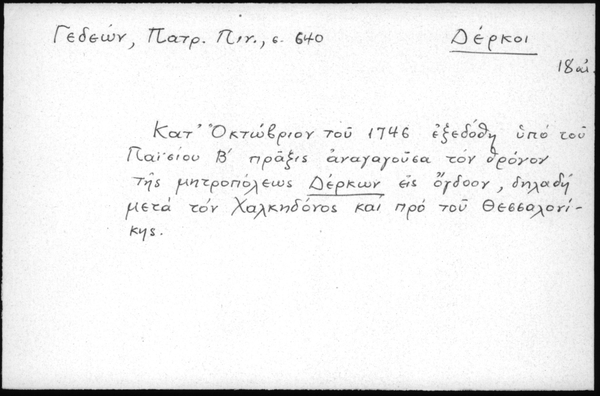 Γεδεών, Πατρ. Πιν., σ. 640
Δέρκοι
18 αἰ.
Κατ' Ὀκτώβριον τοῦ 1746 ἐξεδόθη ὑπό τοῦ
Παϊσίου Β' πρᾶξις ἀναγαγοῦσα τόν θρόνον
τῆς μητροπόλεως Δέρκων εἰς ὄγδοον, δηλαδή
μετά τόν Χαλκηδόνος καί πρό τοῦ Θεσσαλονί-
κης.